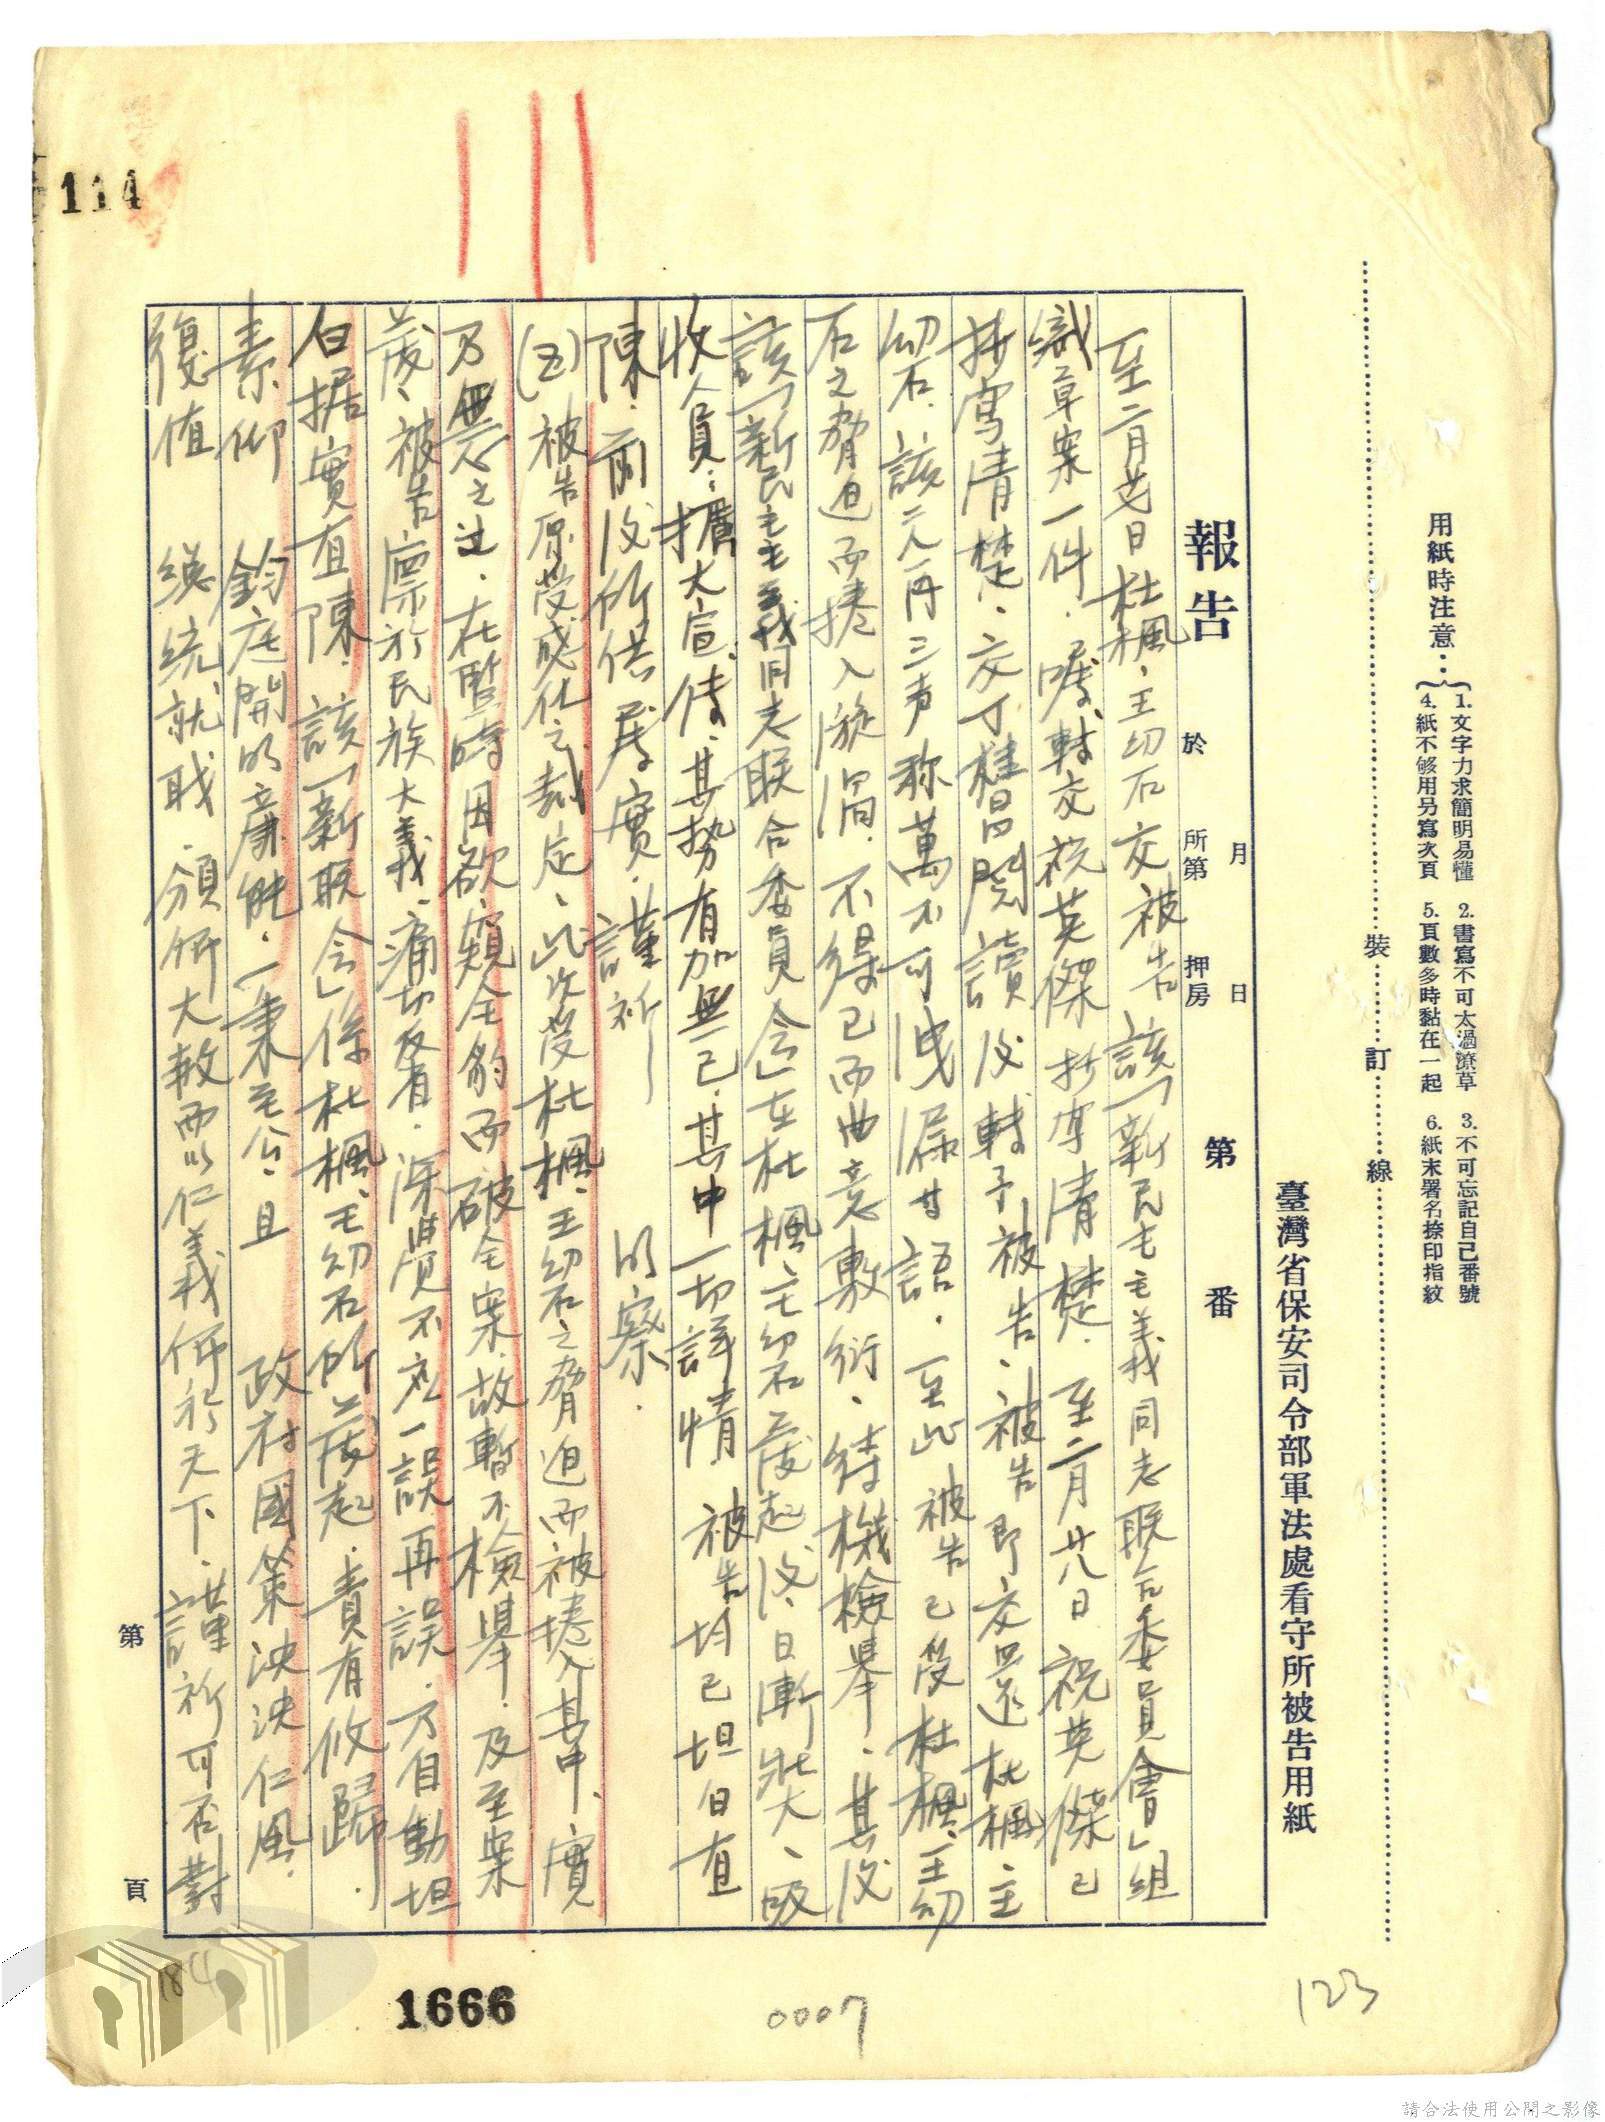 用紙時注意：
1. 文字力求簡明易懂 2. 書寫不可太過潦草 3. 不可忘記自己番號
4. 紙不够用另寫次頁 5. 頁數多時黏在一起 6. 紙末署名捺印指紋
裝 訂 線
臺灣省保安司令部軍法處看守所被告用紙
報告 於 月 日 所第 押房 第 番
至二月 日杜楓、王幼石交被告該「新民主主義同志联合委員會」組
織草案一件．嘱轉交祝英傑抄寫清楚．至二月廿八日祝英傑已
抄寫清楚、交丁 閱讀後轉予被告、被告即交还杜楓、王
幼石．該二人再三声称萬不可洩漏 語．至此被告已受杜楓、王幼
石之脅迫而捲入漩渦．不得已而曲意敷衍、待機檢舉、其後
該「新民主主義同志联合委員会」在杜楓、王幼石發起後、日漸壯大、吸
收人員、擴大宣傳、其勢有加無已、其中一切詳情被告均已坦白直
陳．前後所供属實．謹祈 明察．
(五)被告原受感化之裁定、此次受杜楓、王幼石之脅迫而被捲入其中、實
乃無心之过．在暫時因欲窺全豹而破全案．故暫不檢舉．及至案
發、被告凛於民族大義、痛切反省．深 不必一誤再誤．乃自動坦
白据實直陳．該「新联会」係杜楓、王幼石所發起．責有攸歸．
素仰 鈞庭開明廉能．一秉至公、且 政府國策泱泱仁風．
復值 總統就职．頒佈大赦而以仁義佈於天下．謹祈可否對
第 頁
114
184
1666
0007
123
請合法使用公開之影像